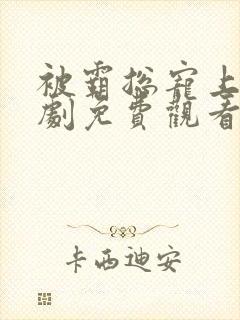 被霸總寵上
劇免費觀看
卡西迪安